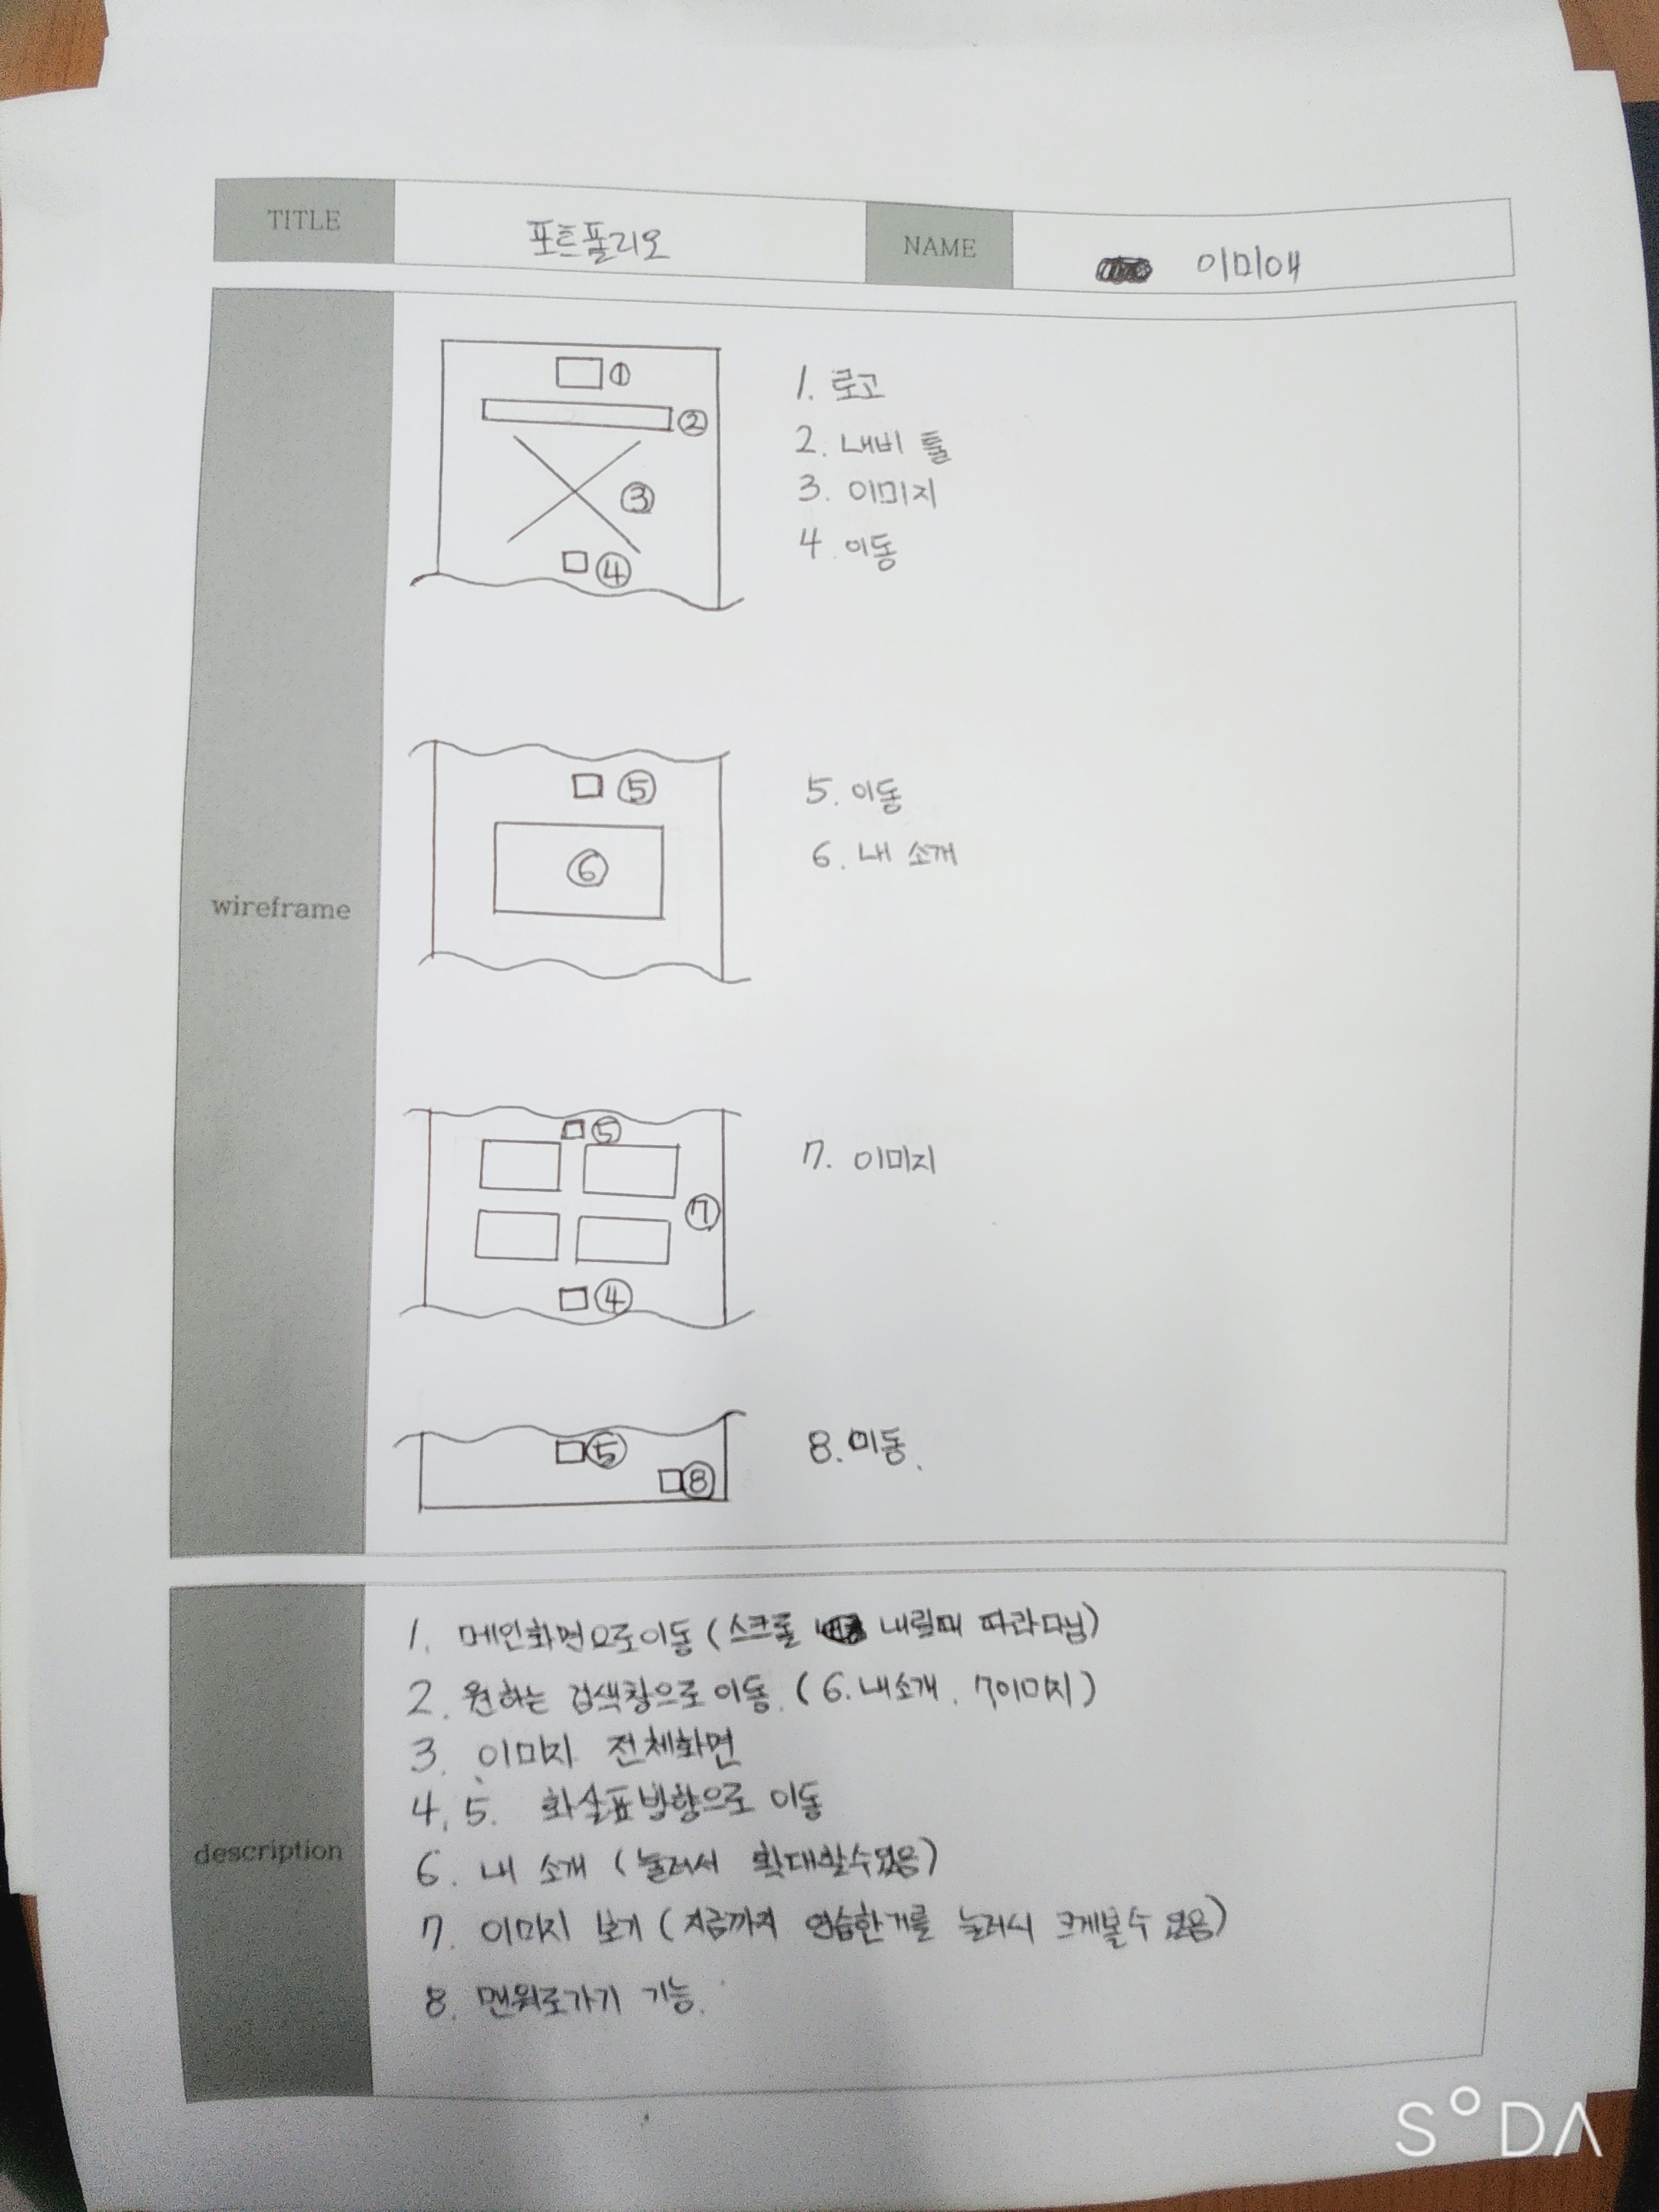 TITLE 포트폴리오 NAME 이미애
①
②
③
④
1. 로고
2. 내비 툴
3. 이미지
4. 이동
⑤
⑥
5. 이동
6. 내 소개
wireframe
⑤
⑦
④
7. 이미지
⑤
⑧
8. 이동.
description
1. 메인화면으로이동 (스크롤 내릴때 따라다님)
2. 원하는 검색창으로 이동. (6. 내소개, 7이미지)
3. 이미지 전체화면
4, 5. 화살표방향으로 이동
6. 내 소개 (눌러서 확대할수있음)
7. 이미지 보기 (지금까지 연습한거를 눌러서 크게볼수 있음)
8. 맨위로가기 기능.
SODA